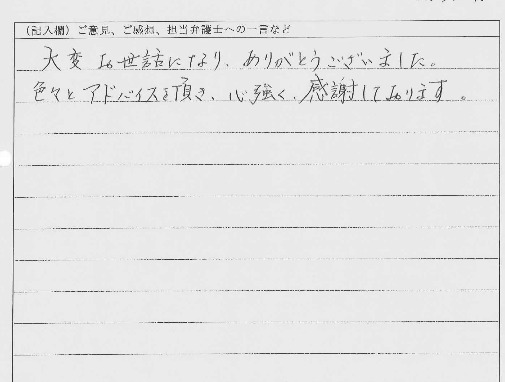 （記入欄）ご意見、ご感想、担当弁護士への一言など
大変お世話になり、ありがとうございました。
色々とアドバイスを頂き、心強く、感謝しております。